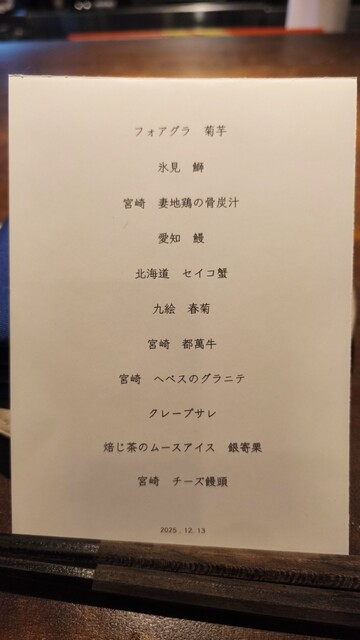 フォアグラ　菊芋
氷見　鰤
宮崎　妻地鶏の骨炭汁
愛知　鰻
北海道　セイコ蟹
九絵　春菊
宮崎　都萬牛
宮崎　ヘベスのグラニテ
クレープサレ
焙じ茶のムースアイス　銀寄栗
宮崎　チーズ饅頭
2025. 12. 13